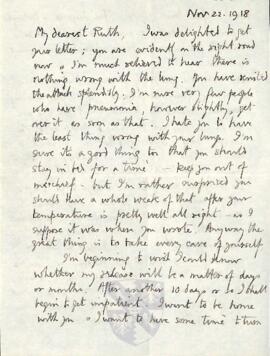 Nov 22. 1918
My dearest Ruth, I was delighted to get
your letter; you are evidently on the right road
now & I'm much relieved to hear there is
nothing wrong with the lung. You have resisted
the attack splendidly. I'm sure very few people
who have pneumonia, however slightly, get
over it as soon as that. I hate you to have
the least thing wrong with your lungs. I'm
sure it's a good thing too that you should
stay in bed for a time – keep you out of
mischief – but I'm rather surprised you
should have a whole week of that after your
temperature is pretty well all right – as I
suppose it was when you wrote. Anyway the
great thing is to take every care of yourself
I'm beginning to wish I could know
whether my release will be a matter of days
or months. After another 10 days or so I shall
begin to get impatient. I want to be home
with you & I want to have some time to turn